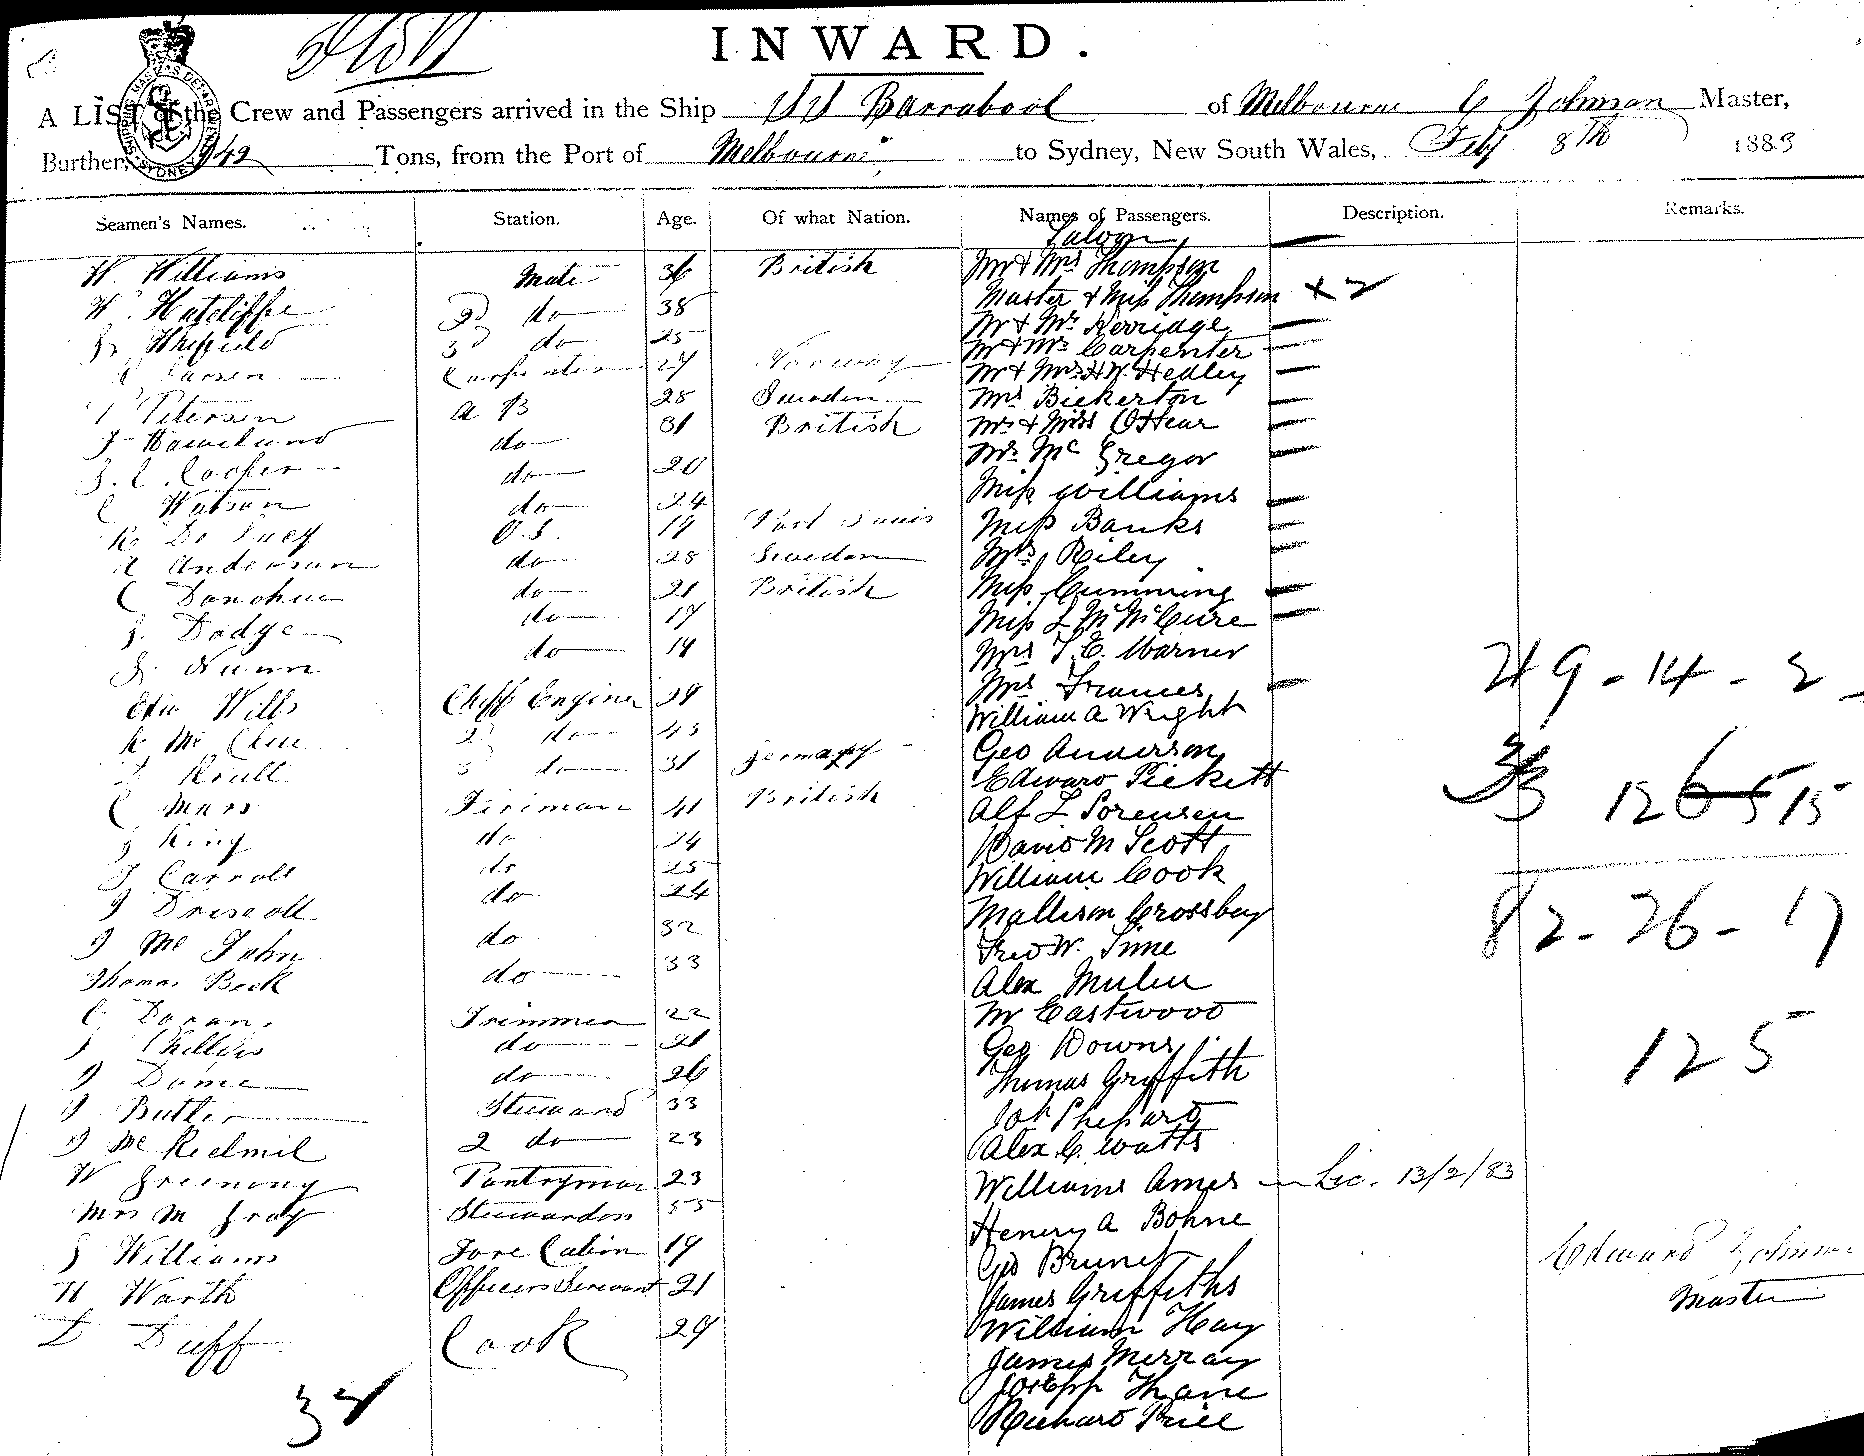 INWARD.
A LIST of the Crew and Passengers arrived in the Ship SS Barrabool of Melbourne E Johnson Master,
Burthen, 942 Tons, from the Port of Melbourne to Sydney, New South Wales, Feby 8th 1883
Seamen's Names. Station. Age. Of what Nation. Names of Passengers. Description. Remarks.
Saloon
W. Williams Mate 36 British Mr & Mrs Thompson
W. Hatcliffe 2d do 38 Master & Miss Thompson x 2
3d do 25 Mr & Mrs Kerridge
Larsen Carpenter 27 Norway Mr & Mrs Carpenter
Mr & Mrs H W. Hedley
Petersen A B 28 Sweden Mrs Bickerton
do 31 British Mrs & Miss O'Hear
J. C. Cooper do 20 Mr Mc Gregor
C Watson do 24 Miss Williams
R De Lucy O.S. 19 Port Louis Miss Banks
A Anderson do 28 Sweden Mrs Riley
C Donohue do 21 British Miss Cumming
J. Dodge do 17 Miss L
J. Nunn do 19 Mrs T. E. Warner
Edw Wills Chief Engineer 39 Mrs Frances
William A Wright
R Mc Clue 2d do 43 Geo Anderson
Krull 3d do 31 Germany Edward Pickett
C Mars Fireman 41 British Alf L Sorensen
J King do 24 David M Scott
J Carroll do 25 William Cook
J Driscoll do 24 Mallison Crossbey
J Mc John do 32 Fred W. Sime
Thomas Beck do 33 Alex
C. Doran Trimmer 22 Mr Eastwood
J Phillips do 21 Geo Downs
J Dume do 26 Thomas Griffith
J Butler Steward 33 Jos Shepard
J Mc Redmil 2 do 23 Alex C. Watts
W Greenony Pantryman 23 Williams Ames Lic. 13/2/83
Mrs M Gray Stewardess 55 Henery A Bohne
J Williams Fore Cabin 19 Geo Brunet
H Warth Officers Servant 21 James Griffiths
D Duff Cook 29 William Hay
James Merray
Joseph Thane
Richard Price
34
49 - 14 - 2
33 12 15
82 - 26 - 17
125
Edward Johnson
Master